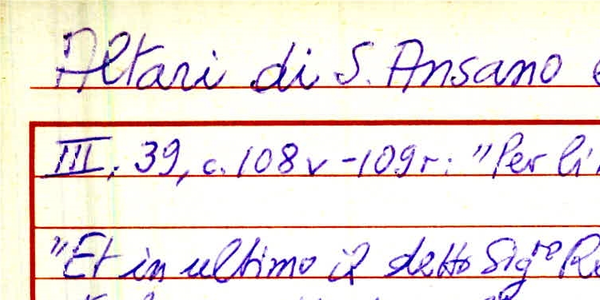 Altari di S. Ansano e
III, 39, c. 108v - 109r: "Per li
"Et in ultimo il detto Sig.re Re